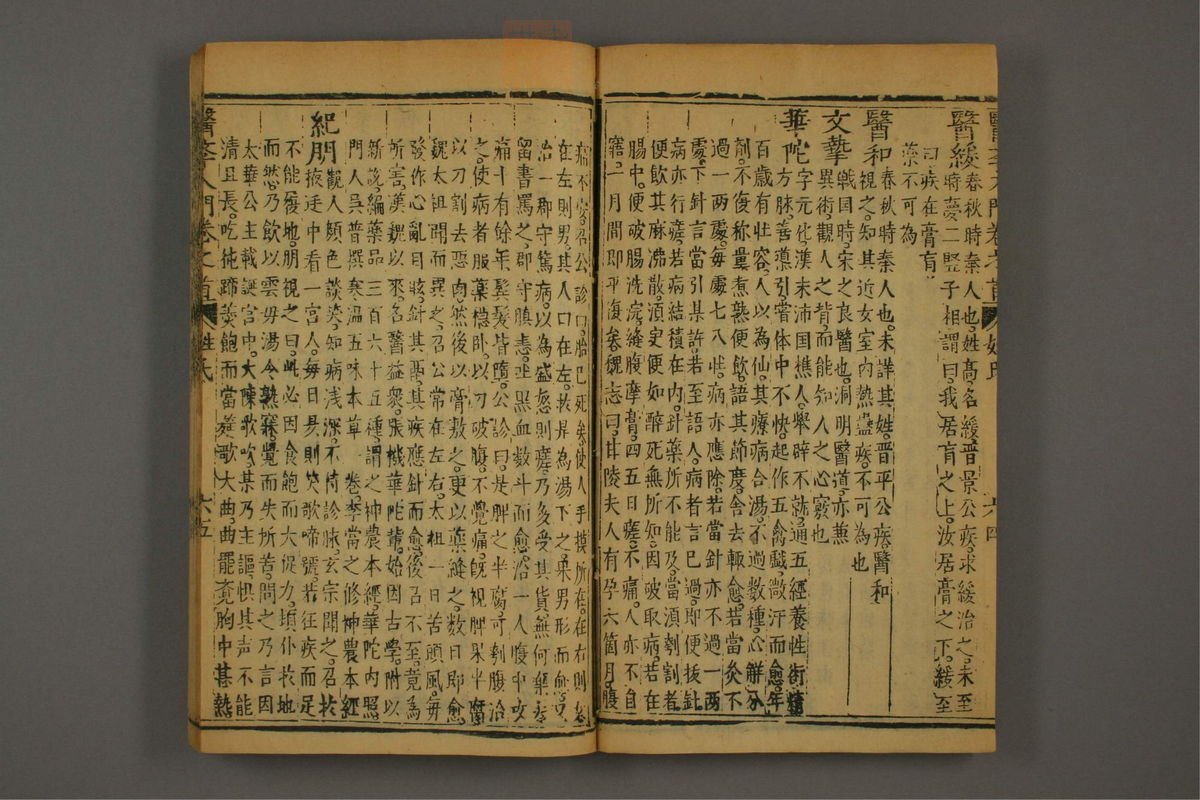 醫緩春秋時秦人也姓高名緩晉景公疾求緩治之未至
時夢二竪子相謂曰我居肓之上汝居膏之下緩至
曰疾在膏肓
藥不可為
醫和春秋時秦人也未詳其姓晉平公疾醫和
視之知其近女室内熱蠱疾不可為也
文摯戰国時宋之良醫也洞明醫道亦兼
異術觀人之背而能知人之心竅也
華陀字元化漢末沛国樵人舉辟不就通五經養性術精
方脉善導引當体中不快起作五禽戲微汗而愈年
百歲有壮容人以為仙其療病合湯不過数種心觧分
劑不復称量煮熟便飲語其節度舎去輙愈若當灸不
過一两處每處七八壮病亦應除若當針亦不過一两
處下針言當引某許若至語人病者言已過即便㧞針
病亦行瘥若病結積在内針藥所不能及當湏刳割者
便飲其麻沸散湏定便如醉死無所知因破取病若在
腸中便破腸洗浣縫腹摩膏四五日瘥不痛人亦不自
寤一月間即平復矣魏志曰甘陵夫人有孕六箇月腹
痛不安召公診曰胎已死矣使人手摸所在在右則女
在左則男其人曰在左於是為湯下之果男形而愈又
治一郡守篤病以為盛怒則瘥乃多受其貨無何棄去
留書罵之郡守瞋恚吐黑血数斗而愈治一人腹中攻
痛十有餘年髪髯皆墮公診曰是脾之半腐可刳腹治
之使病者服藥穏卧以刀破腹不覺痛旣視脾果半腐
以刀割去惡肉然後以膏敷之更以藥縫之数日即愈
魏太祖聞而異之召公常在左右太祖一日苦頭風每
發作心亂目眩針其鬲其疾應針而愈後召不至竟為
所害漢魏以來名醫益衆張機華陀輩始因古學附以
新説編藥品三百六十五種謂之神農本經華陀内照
門人吴普撰寒温五味本草一巻李當之修神農本經
紀朋觀人顔色談笑知病浅深不待診脉玄宗聞之召扵
掖廷中看一宮人每日昃則笑歌啼號若狂疾而足
不能履地朋視之曰此必因食飽而大促力頃仆扵地
而然乃飲以雲母湯令熟寐覺而失所苦問之乃言因
太華公主載誕宮中大陳歌吹某乃主謳惧其声不能
清且長吃㹠蹄羮飽而當筵歌大曲曲罷覺胸中甚熱
醫人門巻之首 姓氏 六五